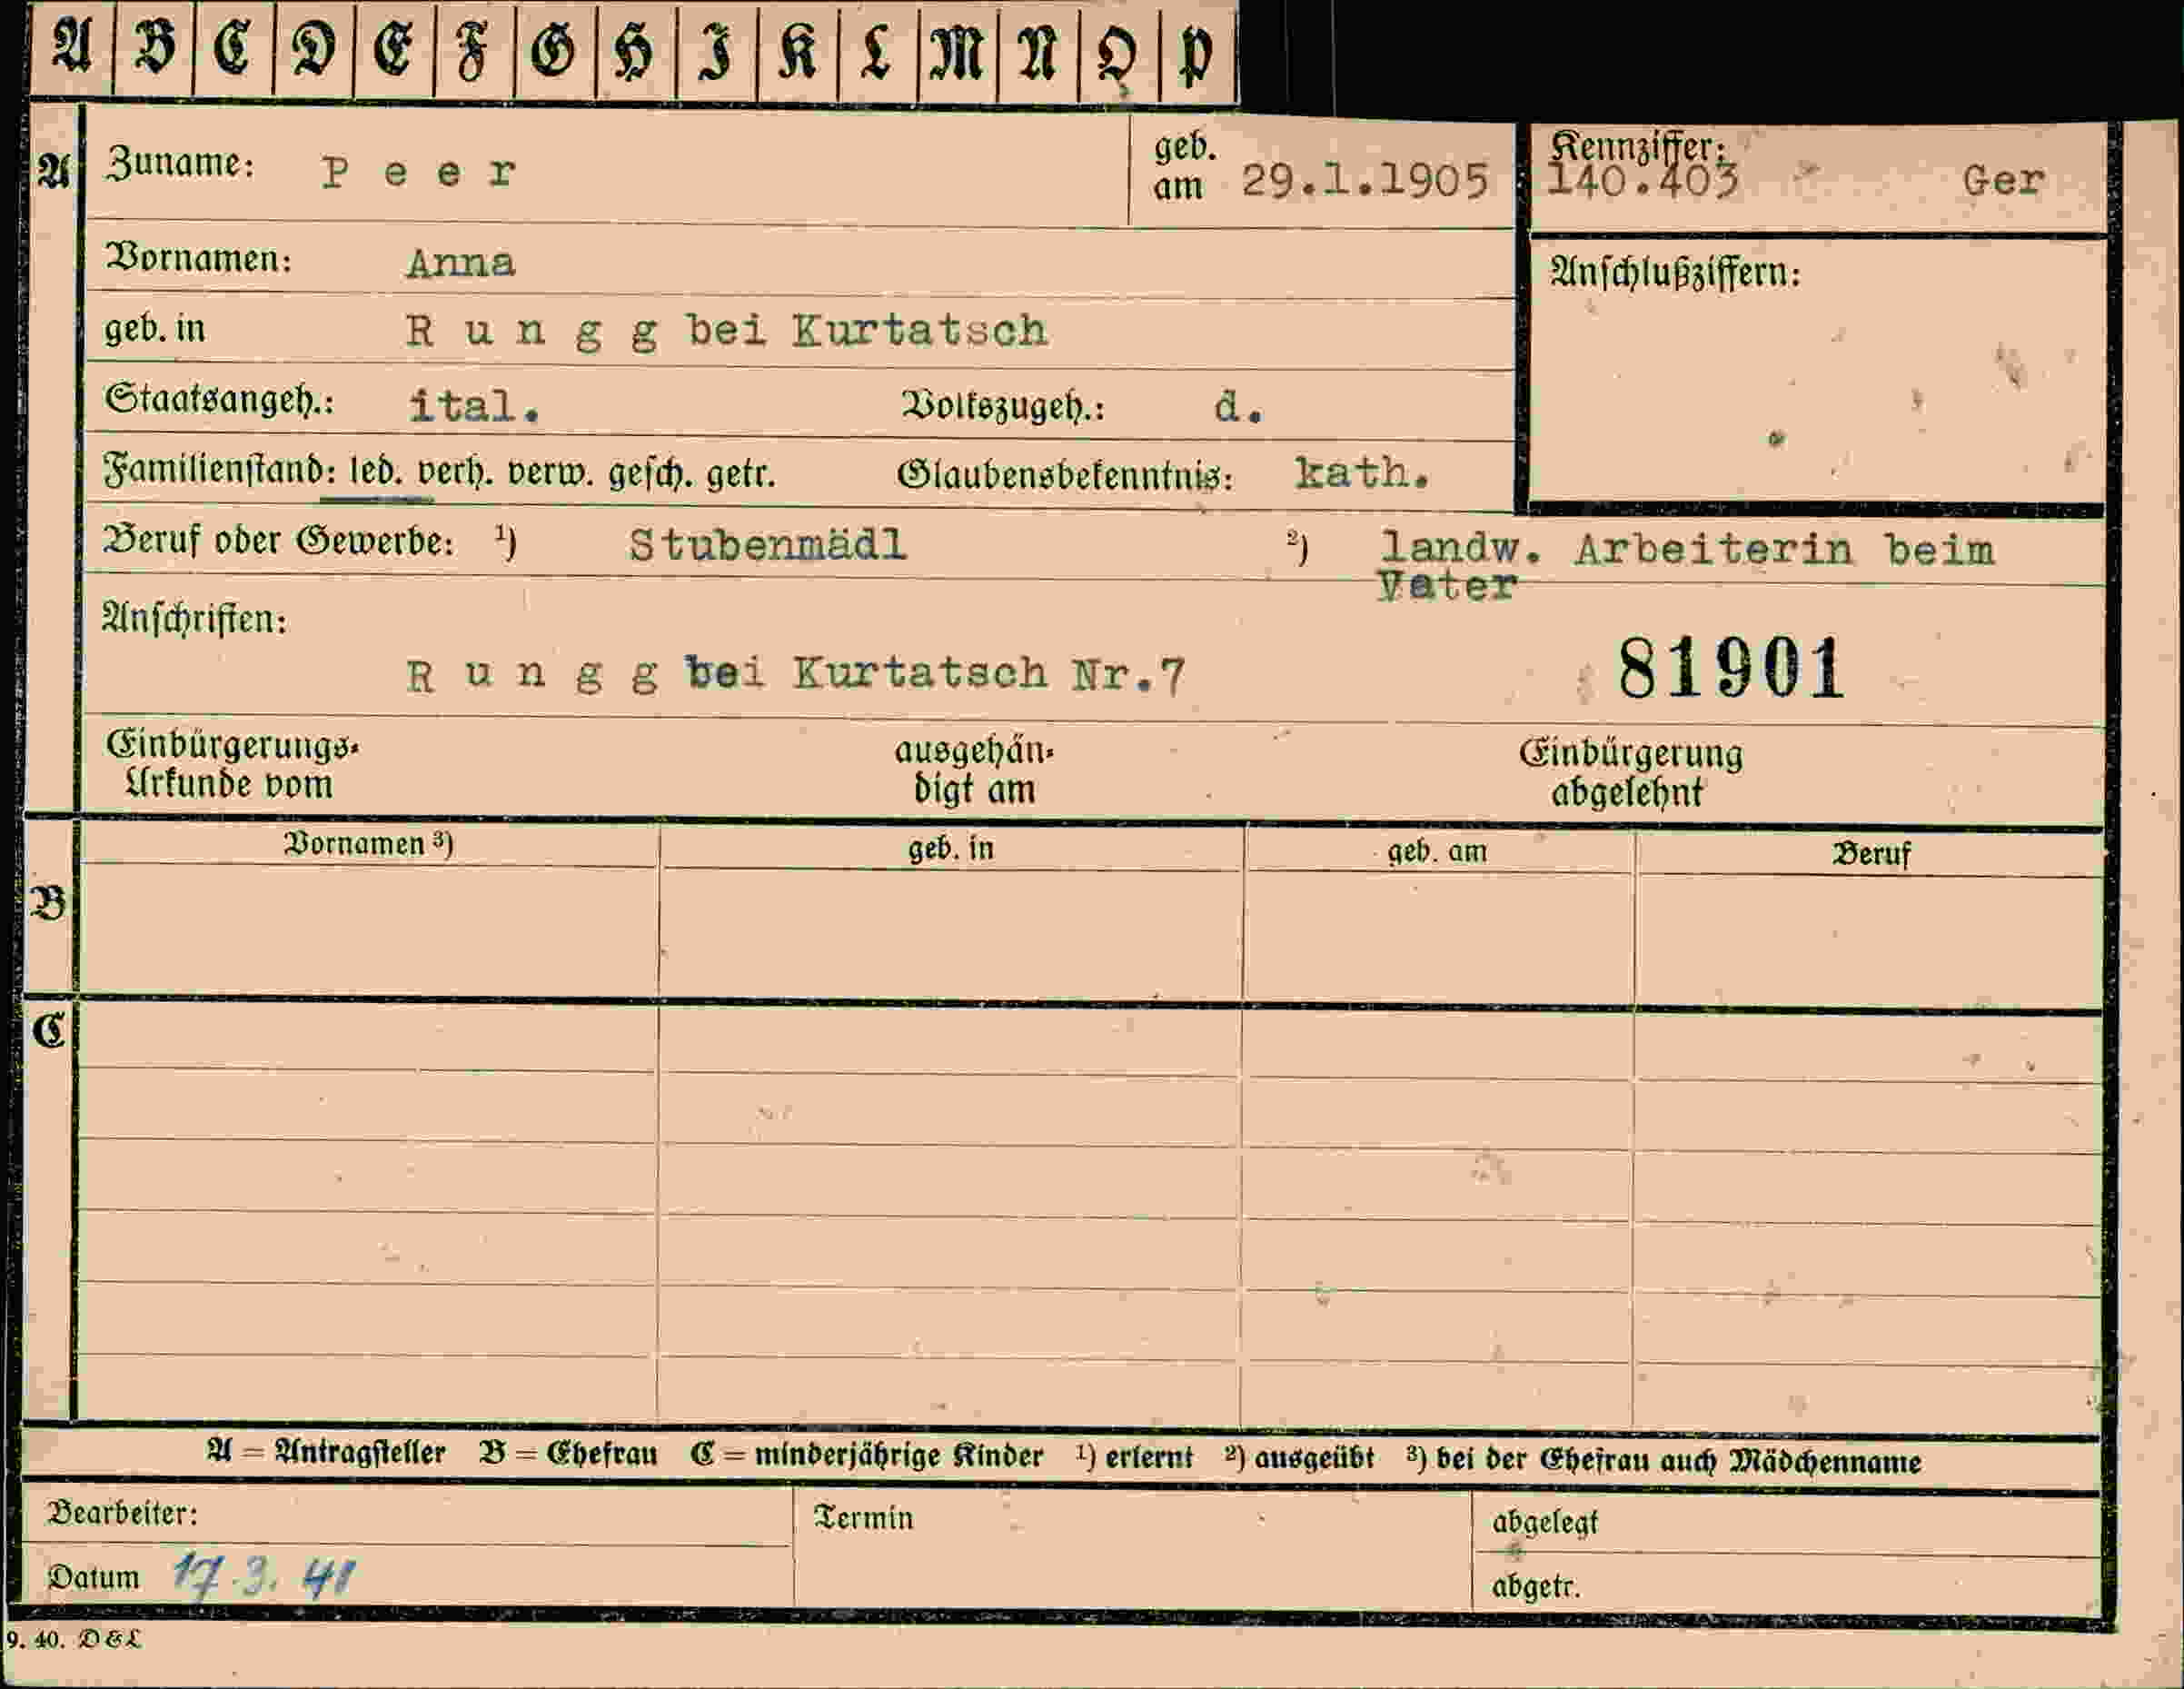 A B C D E F G H I K L M N O P
A
Zuname: P e e r
geb. am 29.1.1905
Kennziffer:
140.403 Ger
Vornamen: Anna
Anschlußziffern:
geb. in R u n g g bei Kurtatsch
Staatsangeh.: ital. Volkszugeh.: d.
Familienstand: led. verh. verw. gesch. getr. Glaubensbekenntnis: kath.
Beruf oder Gewerbe: 1) Stubenmädl 2) landw. Arbeiterin beim
Vater
Anschriften:
R u n g g bei Kurtatsch Nr.7 81901
Einbürgerungs- ausgehän- Einbürgerung
Urkunde vom digt am abgelehnt
Vornamen 3) geb. in geb. am Beruf
B
C
A = Antragsteller B = Ehefrau C = minderjährige Kinder 1) erlernt 2) ausgeübt 3) bei der Ehefrau auch Mädchenname
Bearbeiter: Termin abgelegt
Datum 17.3.41 abgetr.
9. 40. D & L